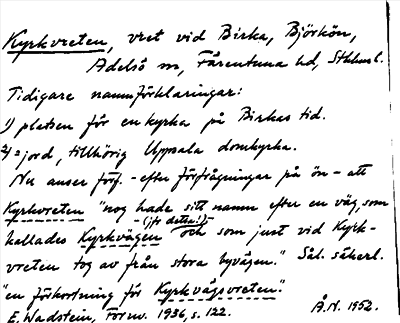 Kyrkvreten, vret vid Birka, Björkön,
Adelsö sn, Färentuna hd, Sthlms l.
Tidigare namnförklaringar:
1) platsen för en kyrka på Birkas tid.
2) = jord, tillhörig Uppsala domkyrka.
Nu anser förf. - efter förfrågningar på ön - att
Kyrkvreten "nog hade sitt namn efter en väg, som
(jfr detta!)
kallades Kyrkvägen och som just vid Kyrk-
vreten tog av från stora byvägen." Sål. säkerl.
"en förkortning för Kyrkvägsvreten".
E. Wadstein, Fornv. 1936, s. 122. Å.N. 1952.